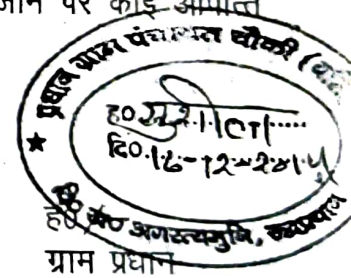 जाने पर कोई आपत्ति
प्रधान ग्राम पंचायत चौकी
ह०
दि०
वि० ख० अगस्त्यमुनि, रुद्रप्रयाग
ह०
ग्राम प्रधान